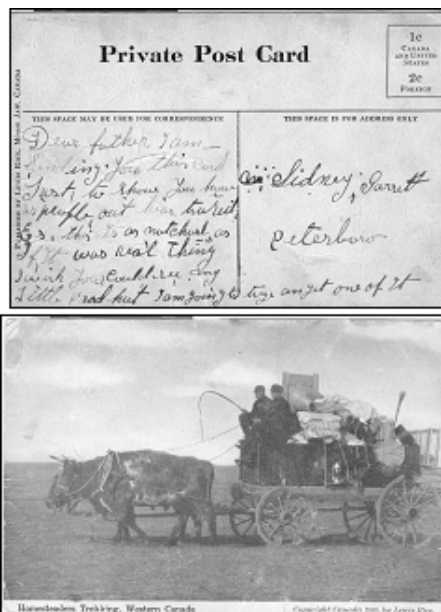 Private Post Card
1c
CANADA
AND UNITED
STATES
2c
FOREIGN
PUBLISHED BY LEWIS RICE, MOOSE JAW, CANADA
THIS SPACE MAY BE USED FOR CORRESPONDENCE
Dear father I am
Sending you this card
Just to show you how
people out hear travel
this is as natchurl as
if it was real thing
I wish you could see my
little but I am going to trye an get one of it
THIS SPACE IS FOR ADDRESS ONLY
Sidney Garrett
Peterboro
Homesteaders Trekking, Western Canada
Copyright Canada by Lewis Rice